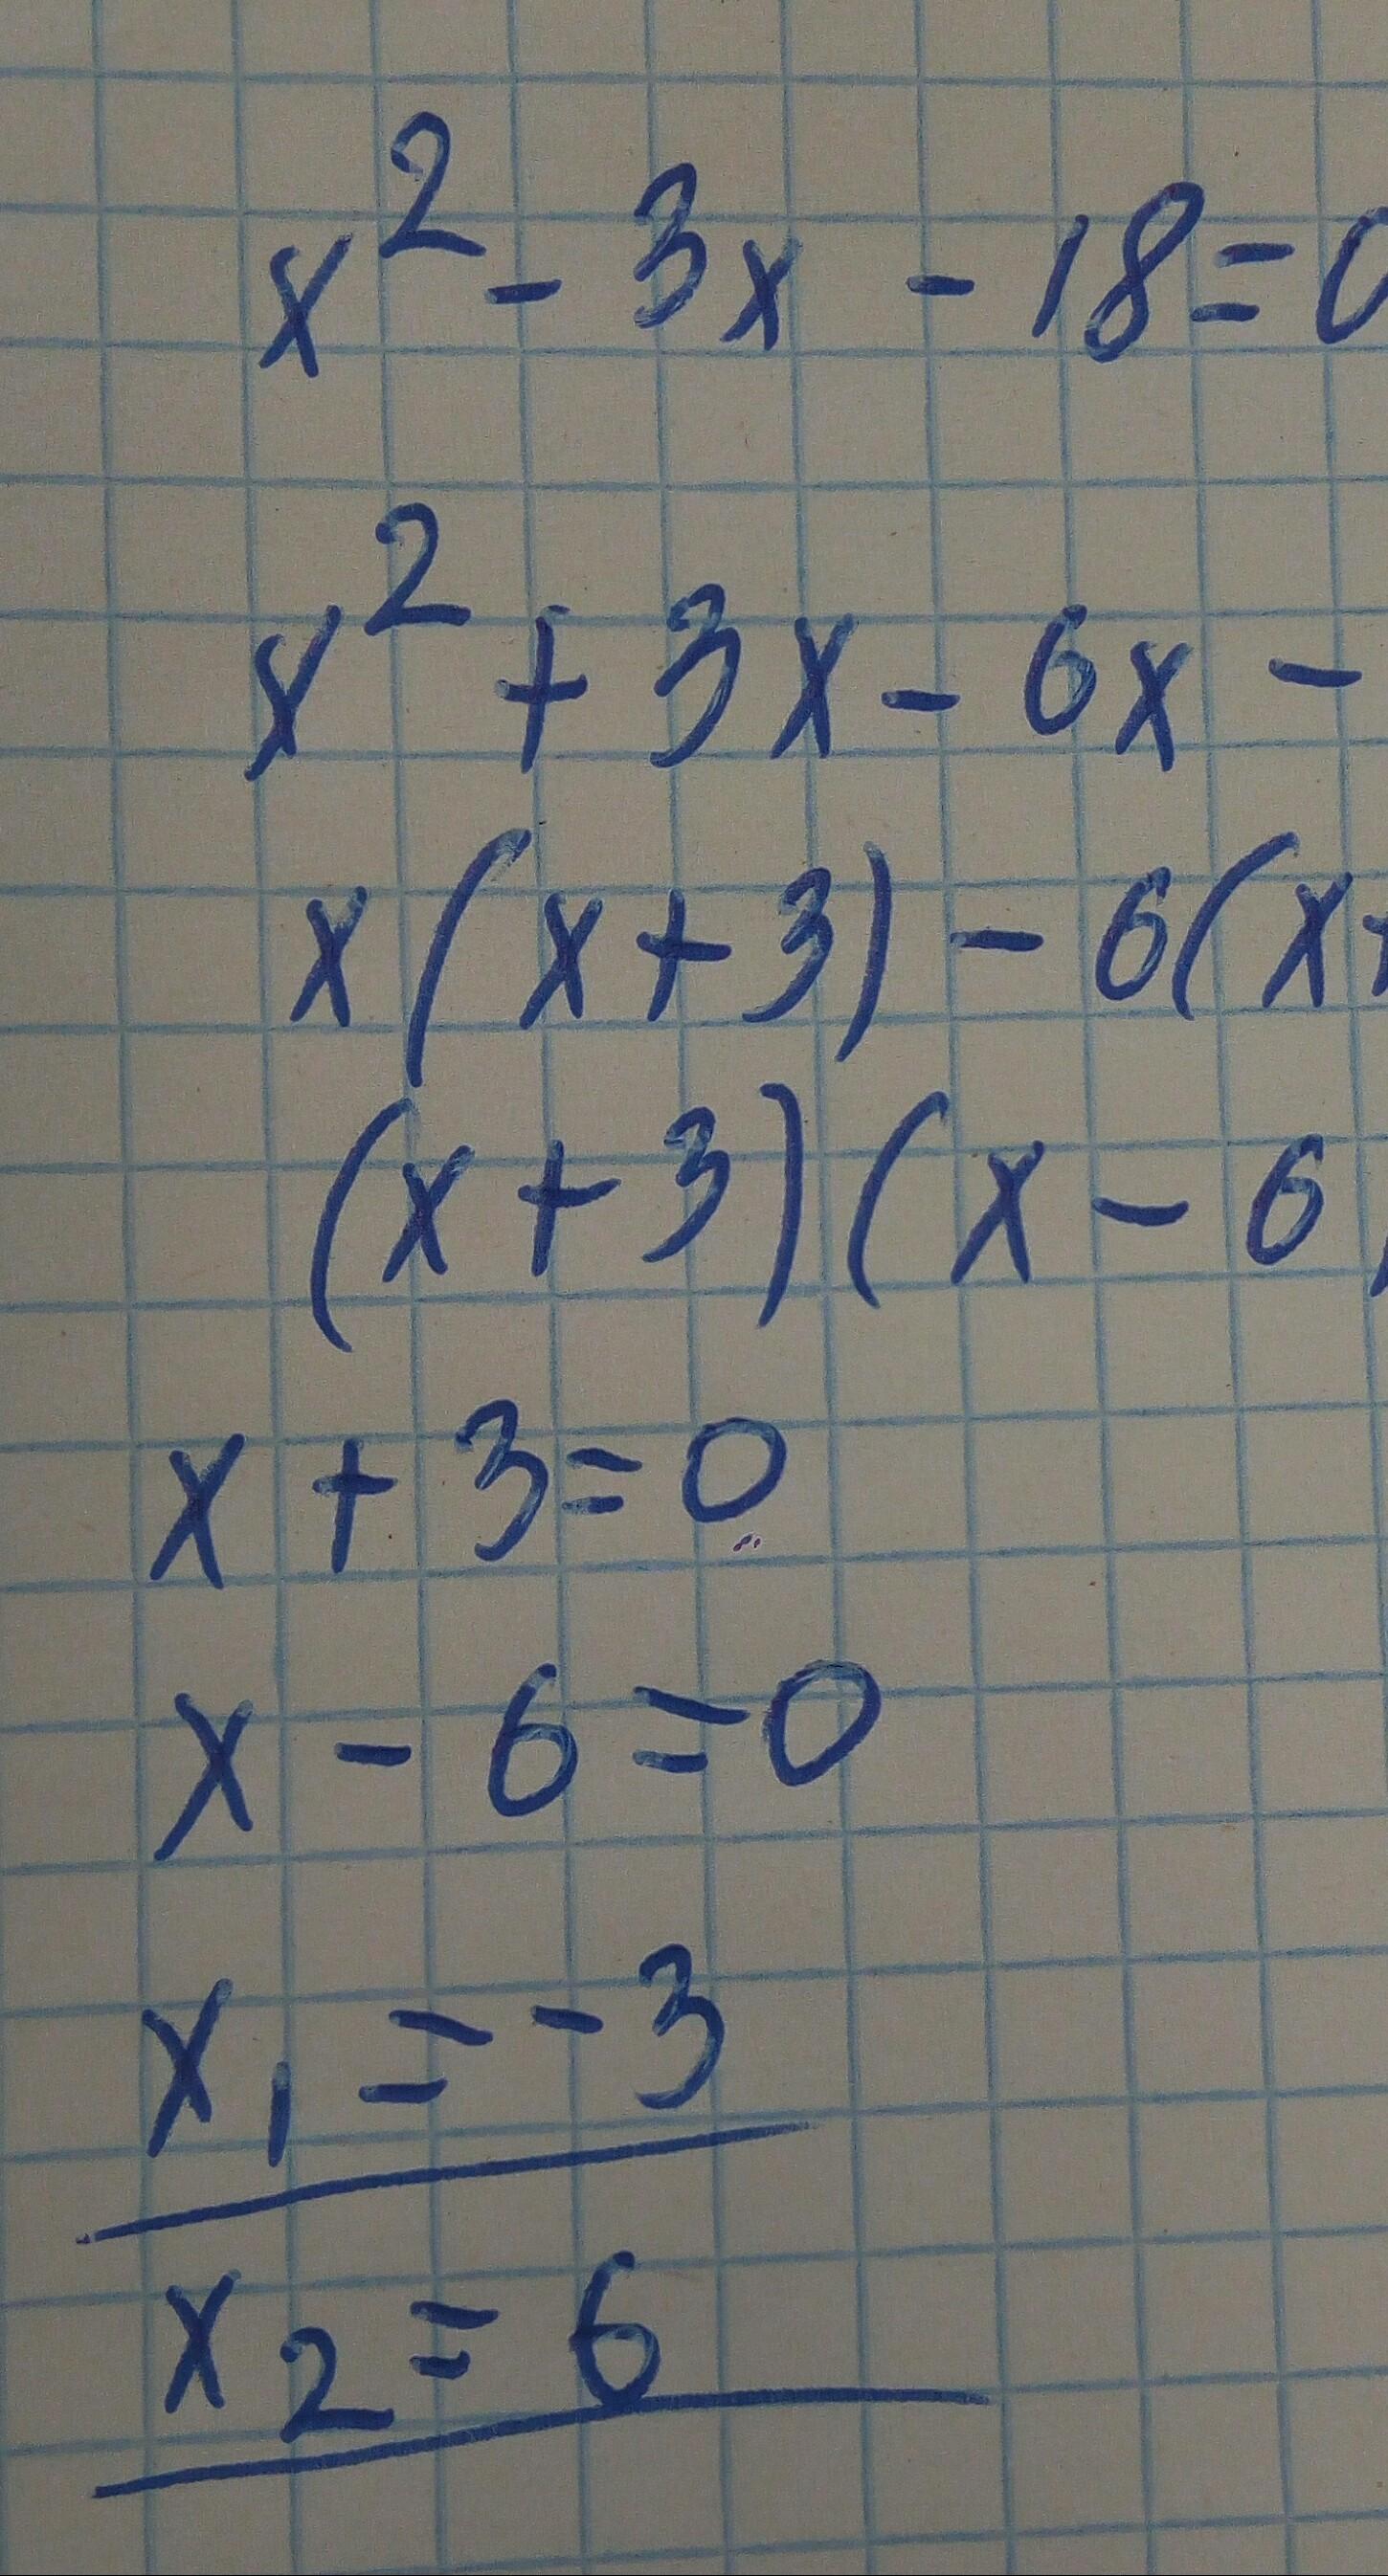 x² - 3x - 18 = 0
x² + 3x - 6x -
x(x+3) - 6(x+
(x+3)(x-6)
x + 3 = 0
x - 6 = 0
x₁ = -3
x₂ = 6